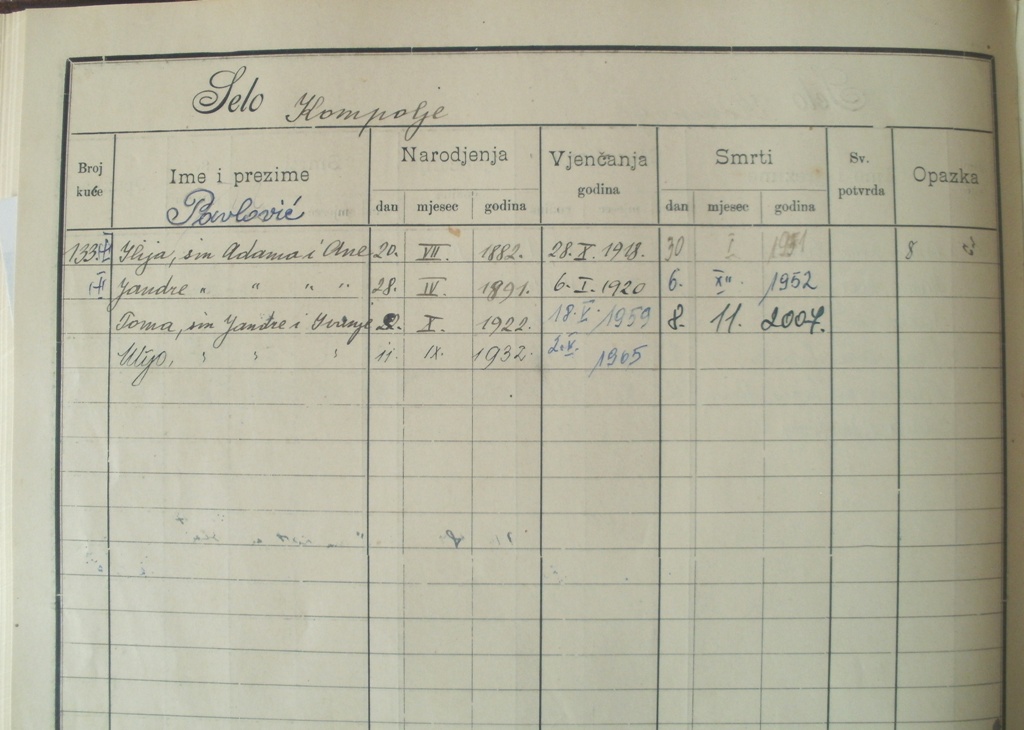 Selo Kompolje
Broj kuće Ime i prezime Narodjenja Vjenčanja godina Smrti Sv. potvrda Opazka
dan mjesec godina dan mjesec godina
Pavlović
133. Ilija, sin Adama i Ane 20. VII. 1882. 28. X. 1918. 30 I 1951 8
Jandre " " " " 28. IV. 1891. 6. I. 1920 6. XII 1952
Toma, sin Jandre i Ivanje 2. X. 1922. 18. V. 1959 8. 11. 2007.
" " " 11. IX. 1932. 2. V. 1965